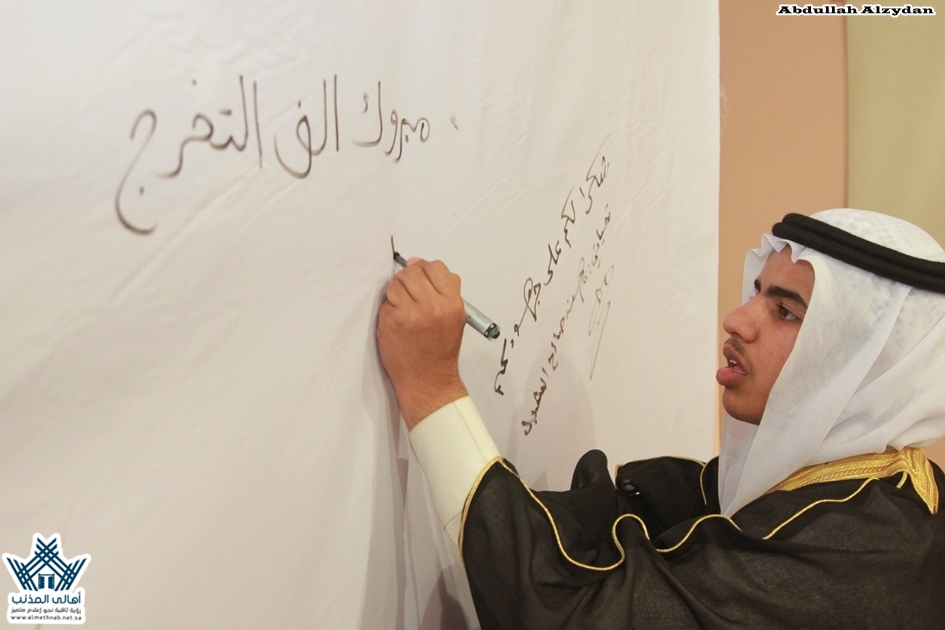 Abdullah Alzydan
مبروك الف التخرج
شكرا لكم على جهودكم
تحياتي:
صالح
أهالي المذنب
رؤية ثاقبة نحو إعلام متميز
www.almethnab.net.sa